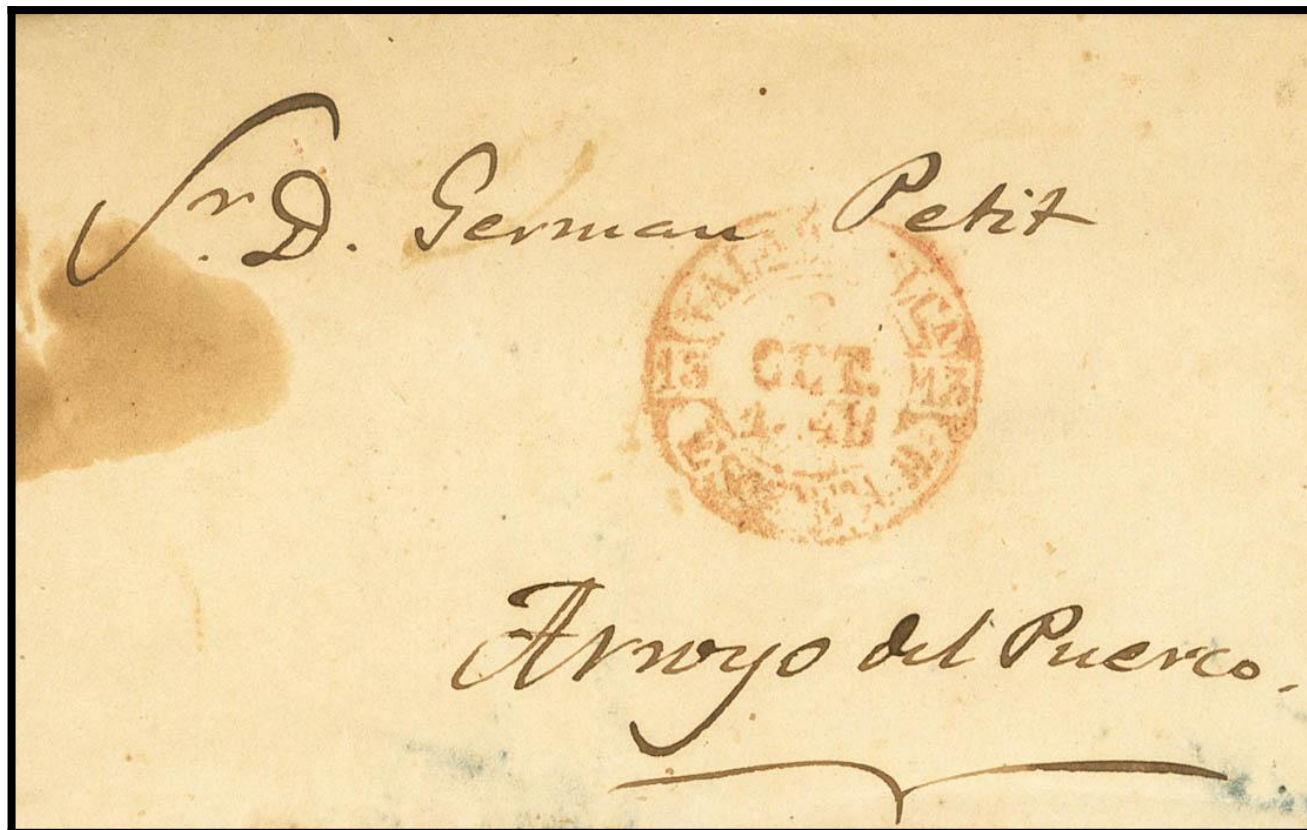 Sr. D. German Petit
13 13
OCT.
Arroyo del Puerco.